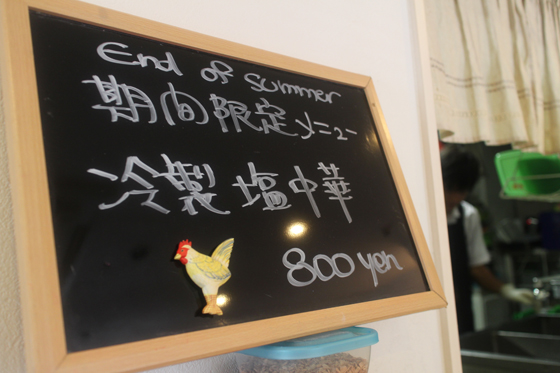 End of summer
期間限定メニュー
冷製塩中華
800 yen